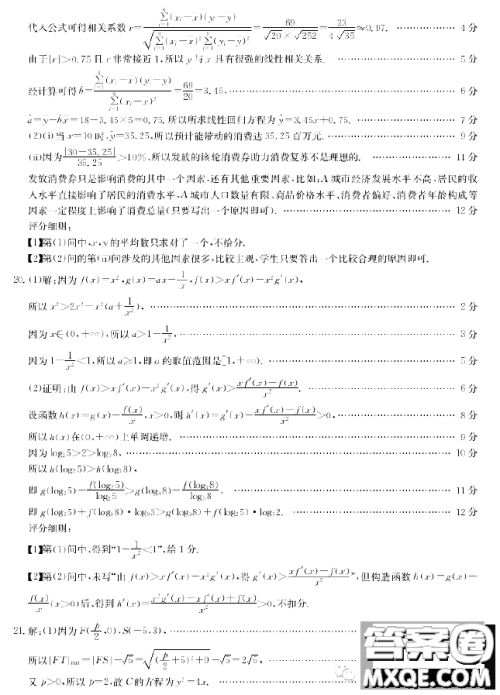 代入公式可得相关系数 r= \frac{\sum_{i=1}(x_i-x)(y_i-y)}{\sqrt{\sum_{i=1}(x_i-x)^2\sum_{i=1}(y_i-y)^2}} = \frac{69}{\sqrt{20}×\sqrt{252}} = \frac{23}{4\sqrt{35}} ≈0.97. 4分
由于|r|>0.75且r非常接近1,所以y与x具有很强的线性相关关系. 5分
经计算可得b= \frac{\sum_{i=1}(x_i-x)(y_i-y)}{\sum_{i=1}(x_i-x)^2} = \frac{69}{20} =3.45, 6分
a=y-bx=18-3.45×5=0.75,所以所求线性回归方程为y=3.45x+0.75. 7分
(2)(i)当x=10时,y=35.25,所以预计能带动的消费达35.25百万元. 9分
(ii)因为\frac{|30-35.25|}{35.25}>10%,所以发放的该轮消费券助力消费复苏不是理想的. 11分
发放消费券只是影响消费的其中一个因素,还有其他重要因素,比如:A城市经济发展水平不高,居民的收
入水平直接影响了居民的消费水平,A城市人口数量有限、商品价格水平、消费者偏好、消费者年龄构成等
因素一定程度上影响了消费总量(只要写出一个原因即可). 12分
评分细则:
【1】第(1)问中,x,y的平均数只求对了一个,不给分.
【2】第(2)问的第(ii)问涉及的其他因素很多,比较主观,学生只要答出一个比较合理的原因即可.
20.(1)解:因为f(x)=x²,g(x)=ax-\frac{1}{x},f(x)>xf′(x)-x²g′(x),
所以x²>2x²-x²(a+\frac{1}{x²}), 2分
因为x∈(0,+∞),所以a>1-\frac{1}{x²}, 3分
因为1-\frac{1}{x²}<1,所以a≥1,即a的取值范围是[1,+∞). 5分
(2)证明:由f(x)>xf′(x)-x²g′(x),得g′(x)>\frac{xf′(x)-f(x)}{x²}. 6分
设函数h(x)=g(x)-\frac{f(x)}{x},x>0,则h′(x)=g′(x)-\frac{xf′(x)-f(x)}{x²}>0, 8分
所以h(x)在(0,+∞)上单调递增. 9分
因为log₂5>2>log₃8, 10分
所以h(log₂5)>h(log₃8),
即g(log₂5)-\frac{f(log₂5)}{log₂5}>g(log₃8)-\frac{f(log₃8)}{log₃8}. 11分
即g(log₂5)+f(log₃8)·log₈3>g(log₃8)+f(log₂5)·log₅2. 12分
评分细则:
【1】第(1)问中,得到“1-\frac{1}{x²}<1”,给1分.
【2】第(2)问中,未写“由f(x)>xf′(x)-x²g′(x),得g′(x)>\frac{xf′(x)-f(x)}{x²}”,但构造函数h(x)=g(x)-
\frac{f(x)}{x}(x>0)后,得到h′(x)=\frac{x²g′(x)-xf′(x)+f(x)}{x²}>0,不扣分.
21.解:(1)因为F(\frac{p}{2},0),S(-5,3),
所以|FT|min=|FS|-\sqrt{5}=\sqrt{(\frac{p}{2}+5)²+9}-\sqrt{5}=2\sqrt{5},
又p>0,所以p=2,故C的方程为y²=4x.
答案圈
MXQE.COM